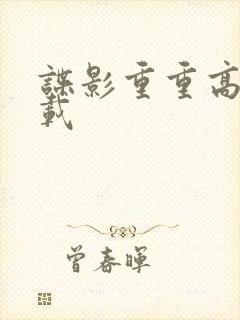 諜影重重高
載
曾春暉